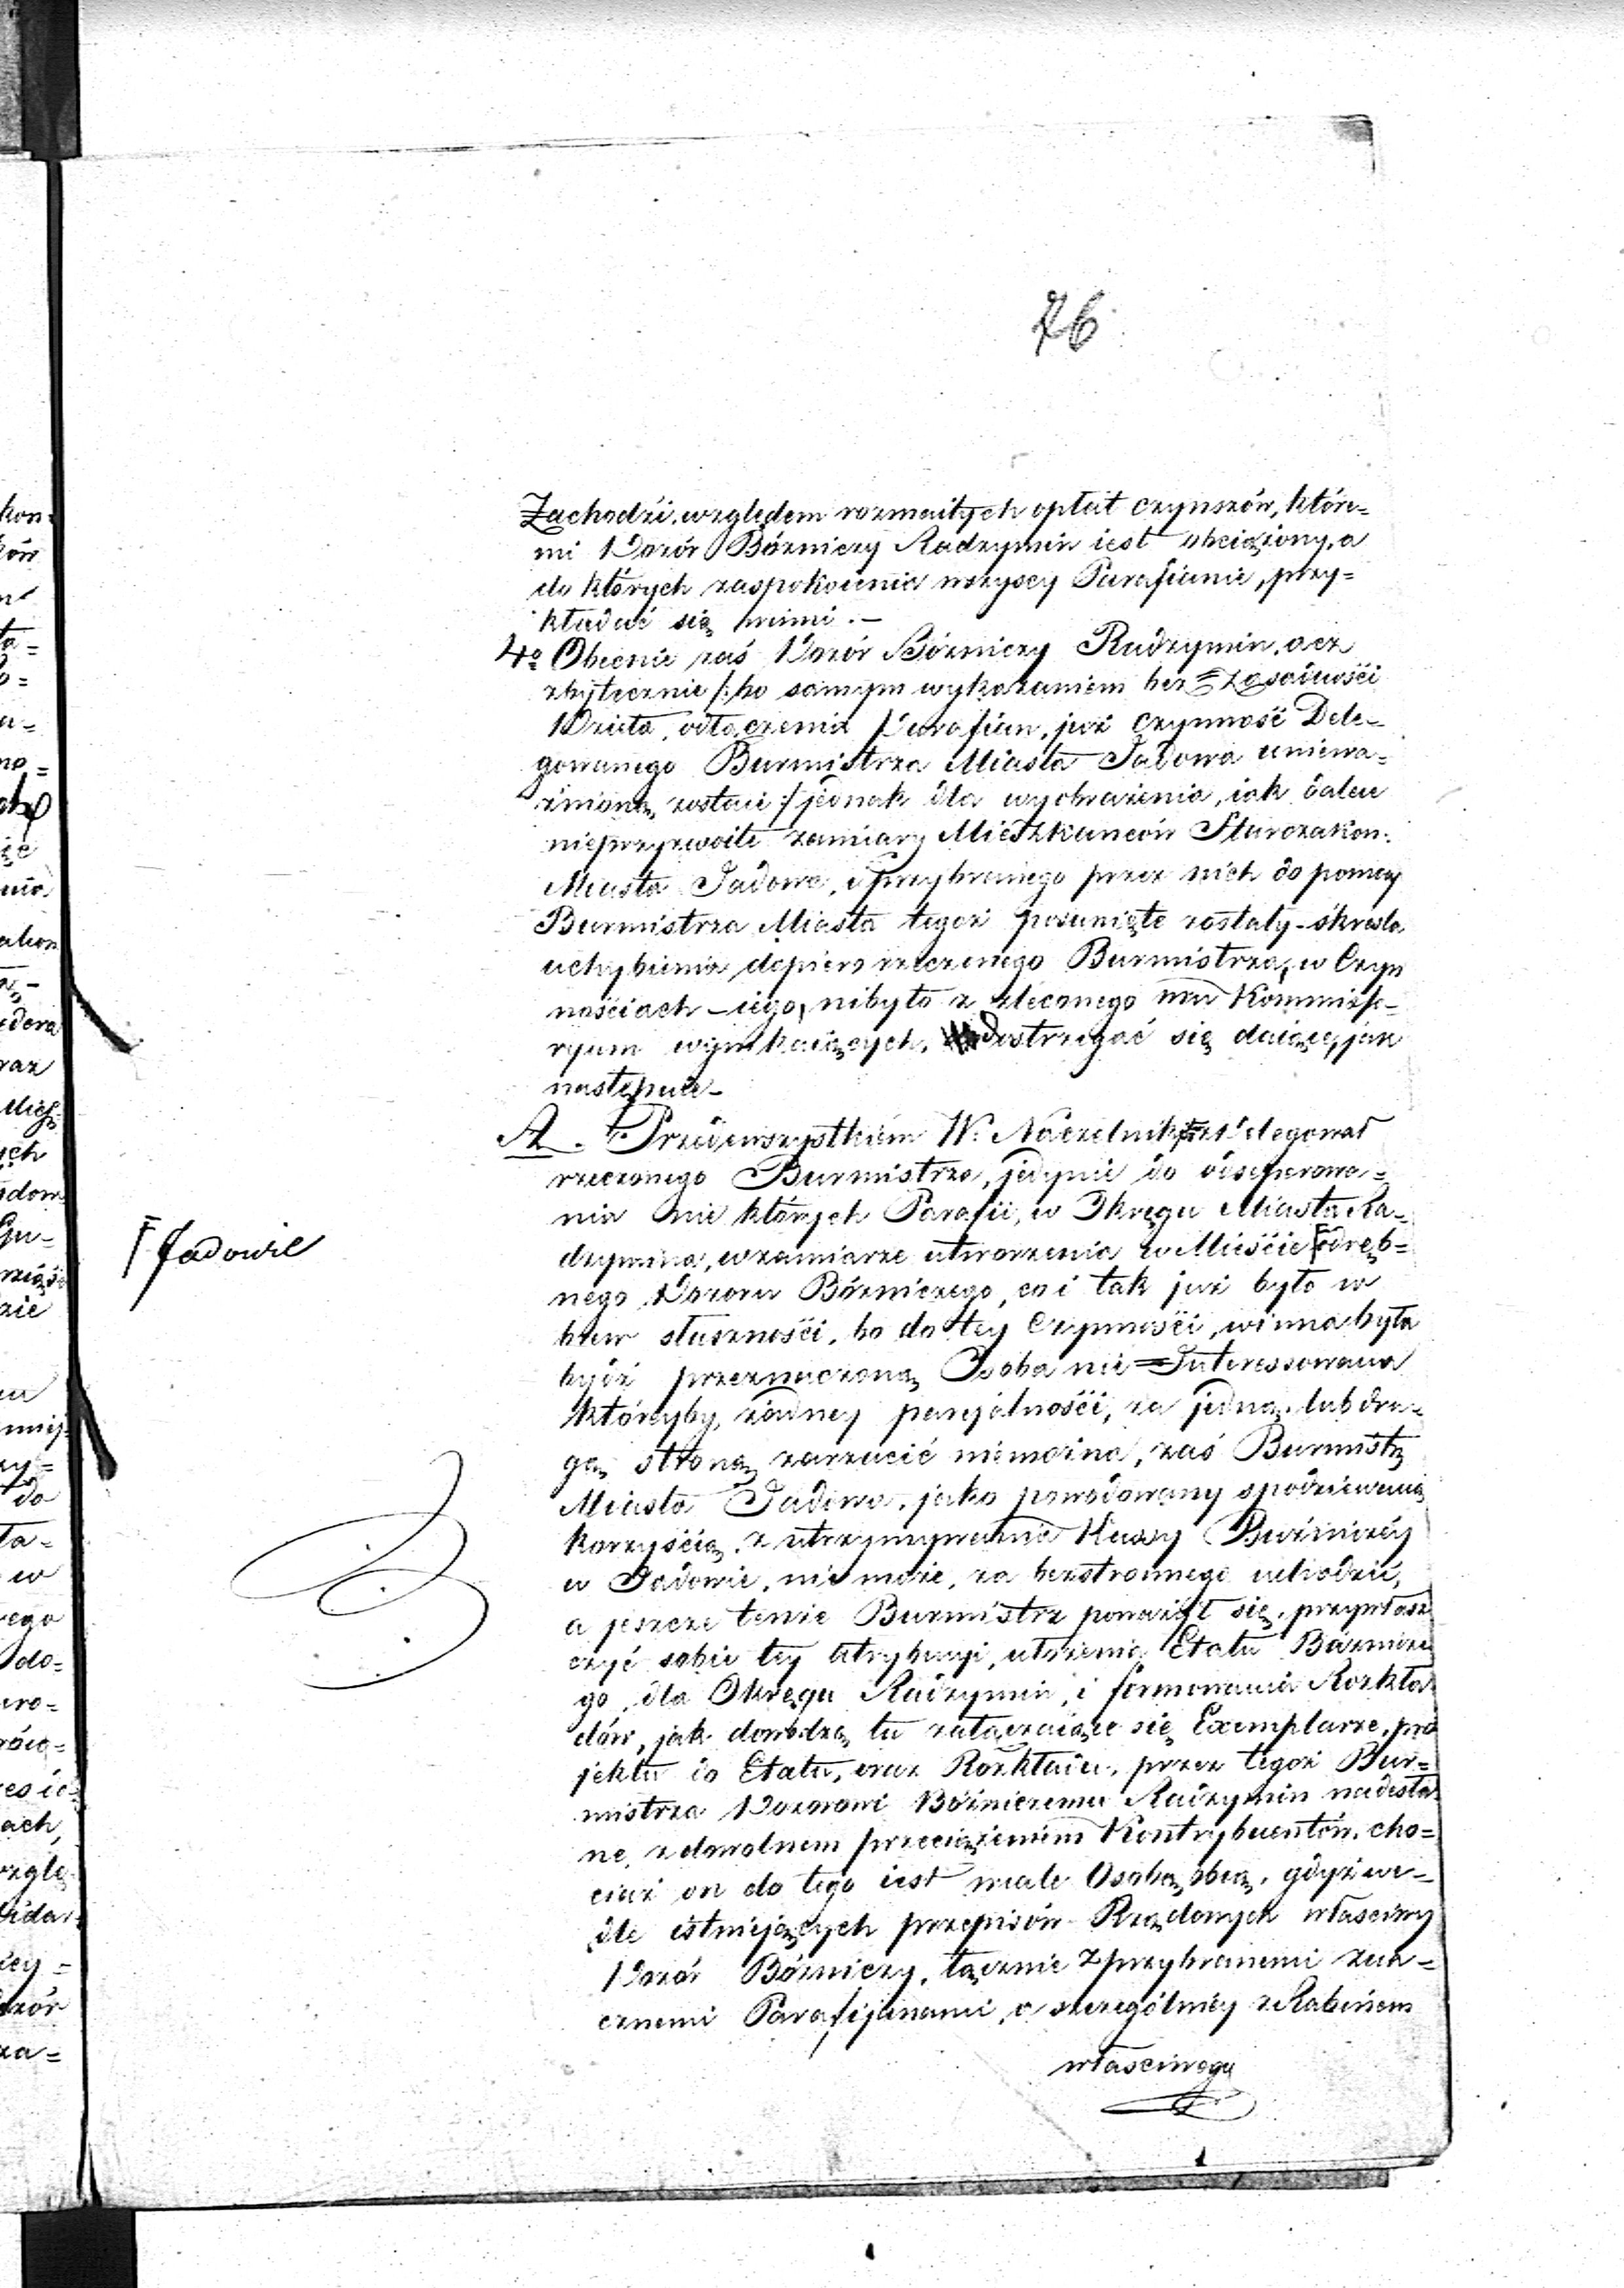 76
Zachodzi, względem rozmaitych opłat czynszów, które=
mi Dozór Bóżniczy Radzymin iest obciążony, a
do których zaspokoienia wszyscy Parafianie, przy=
kładać się winni. –
4o Obecnie zaś Dozór Bóżniczy Radzymin, acz
zbytecznie /: bo samym wykazaniem bez=zasadności
Dzieła, odłączenia Parafian, już czynność Dele=
gowanego Burmistrza Miasta Jadowa uniewa=
żnioną zostaie :/ jednak dla wyobrażenia, iak dalece
nieprzyzwoite zamiary Mieszkańców Starozakon:
Miasta Jadowa, i przybranego przez nich do pomocy
Burmistrza Miasta tegoż posunięte zostały – skreśla
uchybienia dopiero rzeczonego Burmistrza, w Czyn
nościach iego, nibyto z zleconego mu Kommisso=
ryum wynikaiących, dostrzegać się daiące, jak
następuie –
A. Przedewszystkiem W. Naczelnik delegował
rzeczonego Burmistrza, jedynie do odseparowa=
nia nie których Parafii, w Okręgu Miasta Ra=
dzymina, w zamiarze utworzenia w Mieście ⌈ odręb=
⌈ Jadowie
nego Dozoru Bóżniczego, co i tak już było w
brew słuszności, bo do tey Czynności, winna była
bydź przeznaczoną Osoba nie=Interessowana
któreyby, żadney parcjalności, za jedną lub dru=
gą stroną zarzucić niemożna, zaś Burmistrz
Miasta Jadowa, jako powodowany spodziewaną
korzyścią, z utrzymywania Kassy Bużniczéy
w Jadowie, nie może, za bezstronnego uchodzić,
a jeszcze tenże Burmistrz poważył się, przywłasz
czyć sobie tey attrybucyi, ułożenia Etatu Bóżnicze
go, dla Okręgu Radzymin, i formowania Rozkła
dów, jak dowodzą tu załączaiące się Exemplarze, pro
jektu do Etatu, oraz Rozkładu, przez tegoż Bur=
mistrza Dozorowi Bóżniczemu Radzymin nadesła
ne, z dowolnem przeciążeniem Kontrybuentów, cho=
ciaż on do tego iest wcale Osobą obcą, gdyż we=
dle istniejących przepisów Rządowych właściwy
Dozór Bóżniczy, łącznie z przybranemi zna=
cznemi Parafijanami, a szczególniéy z Rabinem
właściwego